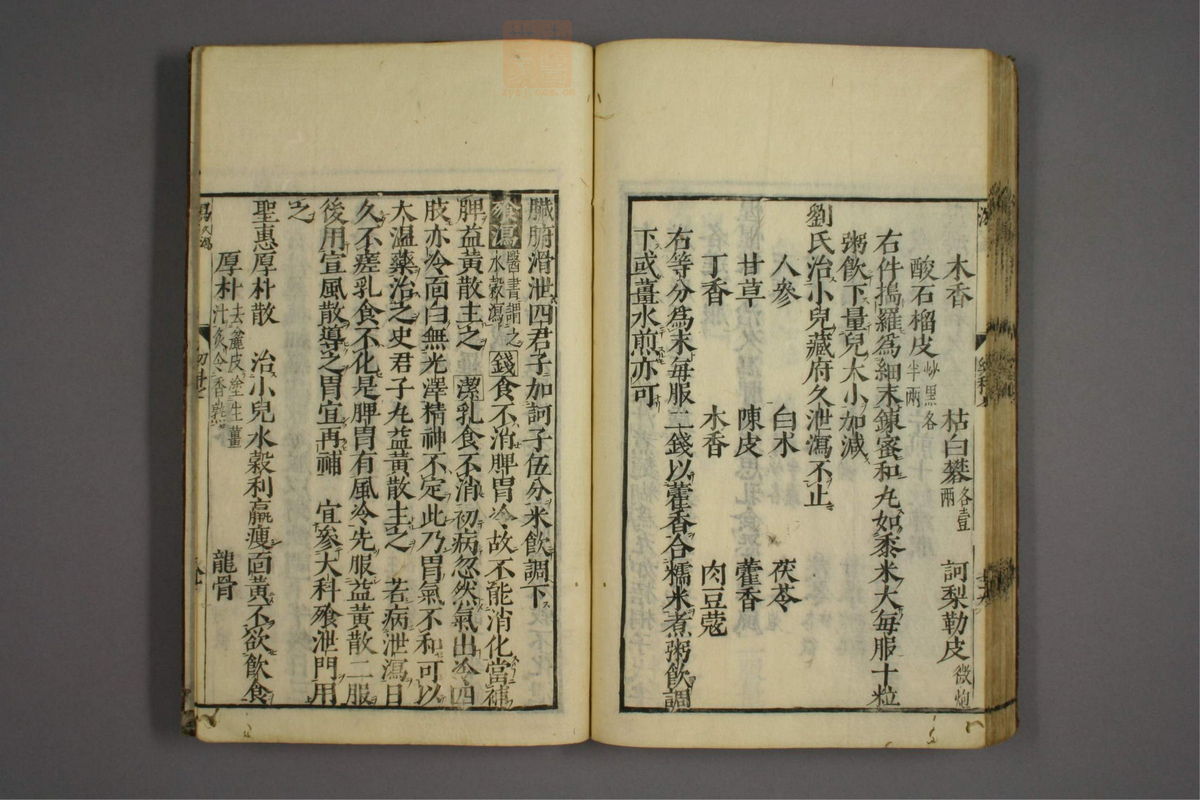 木香　枯白礬各壹兩　訶梨勒皮微炮
酸石榴皮炒黑各半兩
右件搗羅為細末鍊蜜和丸如黍米大每服十粒
粥飲下量兒大小加減
劉氏治小兒藏府久泄瀉不止
人參　白朮　茯苓
甘草　陳皮　藿香
丁香　木香　肉豆蔻
右等分為末每服二錢以藿香合糯米煮粥飲調
下或薑水煎亦可
臟腑滑泄四君子加訶子伍分米飲調下
飱瀉醫書謂之水穀瀉錢食不消脾胃冷故不能消化當補
脾益黃散主之潔乳食不消初病忽然氣出冷四
肢亦冷面白無光澤精神不定此乃胃氣不和可以
大温藥治之史君子丸益黃散主之　若病泄瀉日
久不瘥乳食不化是脾胃有風冷先服益黃散二服
後用宣風散導之胃宜再補　宜參大科飱泄門用
之
聖惠厚朴散　治小兒水穀利羸瘦面黃不欲飲食
厚朴去麄皮塗生薑汁炙令香熟　龍骨